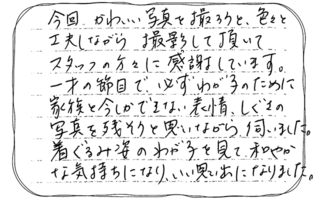 今回、かわいい写真を撮ろうと、色々と
工夫しながら 撮影して頂いて
スタッフの方々に 感謝しています。
一才の節目で、必ず わが子のために
家族と今しかできない表情、しぐさの
写真を残そうと思いながら、伺いました。
着ぐるみ姿のわが子を見て、和やか
な気持ちになり、いい思い出になりました。